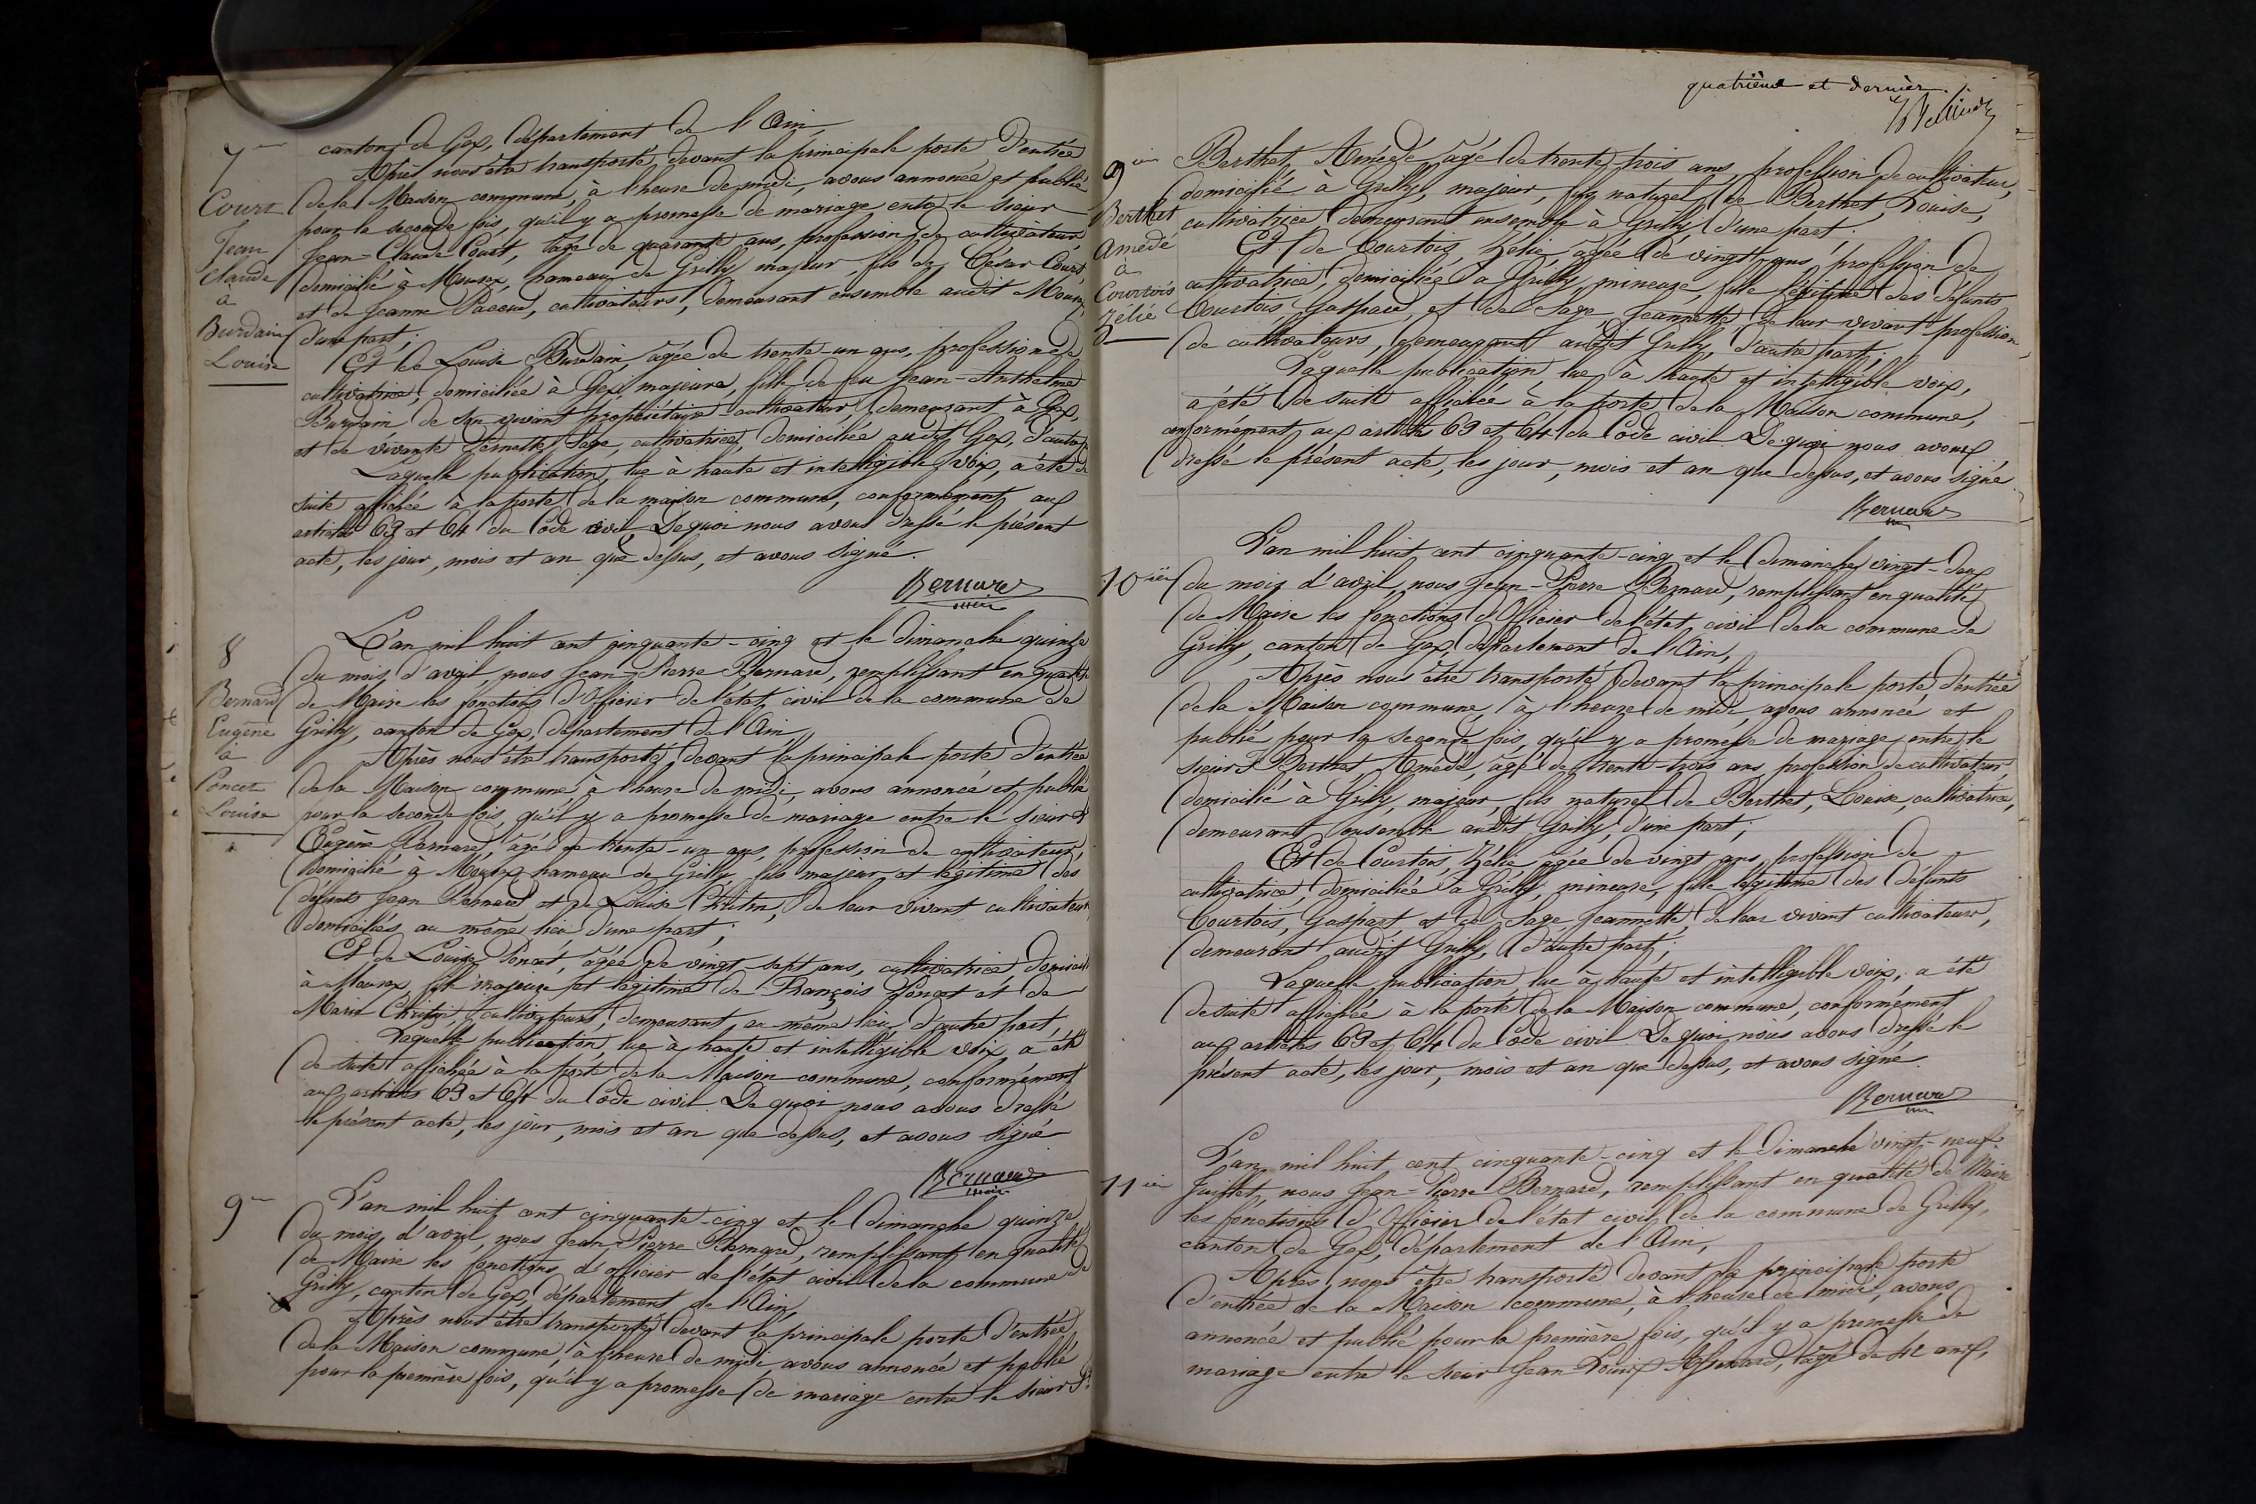 7me
Court
Jean
Claude
à
Burdain
Louise
canton de Gex, département de l'Ain,
Après nous être transporté devant la principale porte d'entrée
de la Maison commune, à l'heure de midi, avons annoncé et publié
pour la seconde fois, qu'il y a promesse de mariage entre le sieur
Jean-Claude Court, âgé de quarante ans, profession de cultivateur
domicilié à Mourex, hameau de Grilly majeur, fils de César Court,
et de Jeanne Pacoud, cultivateurs, demeurant ensemble audit Mourex
d'une part;
Et de Louise Burdain, âgée de trente-un ans, profession de
cultivatrice, domiciliée à Gex, majeure, fille de feu Jean-Anthelme
Burdain de son vivant propriétaire cultivateur, demeurant à Gex,
et de vivante Pernette cultivatrice, domiciliée audit Gex, d'autre
Laquelle publication, lue à haute et intelligible voix, a été de
suite affichée à la porte de la maison commune, conformément aux
articles 63 et 64 du Code civil, De quoi nous avons dressé le présent
acte, les jour, mois et an que dessus, et avons signé.
Bernard
maire
8
Bernard
Eugène
à
Poncet
Louise
L'an mil huit cent cinquante-cinq et le dimanche quinze
du mois d'avril, nous Jean-Pierre Bernard, remplissant en qualité
de Maire les fonctions d'Officier de l'état civil de la commune de
Grilly, canton de Gex, département de l'Ain,
Après nous être transporté devant la principale porte d'entrée
de la Maison commune, à l'heure de midi, avons annoncé et publié
pour la seconde fois, qu'il y a promesse de mariage entre le sieur
Eugène Bernard, âgé de trente-un ans, profession de cultivateur,
domicilié à Mourex hameau de Grilly, fils majeur et légitime des
défunts Jean Bernard et de Louise Christin, de leur vivant cultivateurs
domiciliés au même lieu d'une part;
Et de Louise Poncet, âgée de vingt-sept ans, cultivatrice, domiciliée
à Mourex, fille majeure et légitime de François Poncet et de
Marie Christin, cultivateurs, demeurant au même lieu d'autre part,
Laquelle publication, lue à haute et intelligible voix, a été
de suite affichée à la porte de la Maison commune, conformément
aux articles 63 et 64 du Code civil. De quoi nous avons dressé
le présent acte, les jour, mois et an que dessus, et avons signé
Bernard
maire
9me
L'an mil huit cent cinquante-cinq et le dimanche quinze
du mois d'avril, nous Jean Pierre Bernard, remplissant en qualité
de Maire les fonctions d'officier de l'état civil de la commune de
Grilly, canton de Gex, département de l'Ain,
Après nous être transporté devant la principale porte d'entrée
de la Maison commune, à l'heure de midi, avons annoncé et publié
pour la première fois, qu'il y a promesse de mariage entre le sieur
quatrième et dernier.
9me
Berthet
Amédé
à
Courtois
Zélie
Berthet, Amédé, âgé de trente-trois ans, profession de cultivateur,
domicilié à Grilly, majeur, fils naturel de Berthet, Louise,
cultivatrice demeurant ensemble à Grilly d'une part.
Et de Courtois, Zélie, âgée de vingt ans, profession de
cultivatrice, domiciliée à Grilly, mineure, fille légitime des défunts
Courtois, Gaspard, et de Sage, Jeannette de leur vivant profession
de cultivateurs, demeurant audit Grilly, d'autre part;
Laquelle publication, lue à haute et intelligible voix,
a été de suite affichée à la porte de la Maison commune,
conformément aux articles 63 et 64 du Code civil. De quoi nous avons
dressé le présent acte, les jour, mois et an que dessus, et avons signé
Bernard
10me
L'an mil huit cent cinquante-cinq et le dimanche vingt-deux
du mois d'avril, nous Jean-Pierre Bernard, remplissant en qualité
de Maire les fonctions d'Officier de l'état civil de la commune de
Grilly, canton de Gex, département de l'Ain,
Après nous être transporté devant la principale porte d'entrée
de la Maison commune, à l'heure de midi, avons annoncé et
publié pour la seconde fois, qu'il y a promesse de mariage entre le
sieur Berthet Amédé, âgé de trente-trois ans, profession de cultivateur,
domicilié à Grilly, majeur, fils naturel de Berthet, Louise, cultivatrice,
demeurant ensemble audit Grilly, d'une part;
Et de Courtois, Zélie âgée de vingt ans, profession de
cultivatrice, domiciliée à Grilly, mineure, fille légitime des défunts
Courtois, Gaspart, et de Sage, Jeannette, de leur vivant cultivateurs,
demeurant audit Grilly, d'autre part;
Laquelle publication, lue à haute et intelligible voix, a été
de suite affichée à la porte de la Maison commune, conformément
aux articles 63 et 64 du Code civil De quoi nous avons dressé le
présent acte, les jour, mois et an que dessus, et avons signé
Bernard
11me
L'an mil huit cent cinquante-cinq et le dimanche vingt-neuf
Juillet, nous Jean-Pierre Bernard, remplissant en qualité de Maire
les fonctions d'Officier de l'état civil de la commune de Grilly,
canton de Gex, département de l'Ain,
Après nous être transporté devant la principale porte
d'entrée de la Maison commune, à l'heure de midi, avons
annoncé et publié pour la première fois, qu'il y a promesse de
mariage entre le sieur Jean Louis âgé de 42 ans,